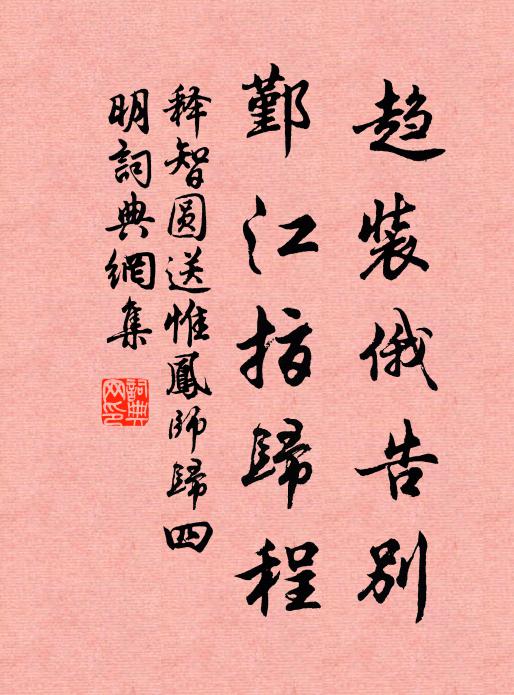 趋装俄告别
鄞江指歸程
释智圆送惟鳳师歸四
明詞典網集
詞典网印